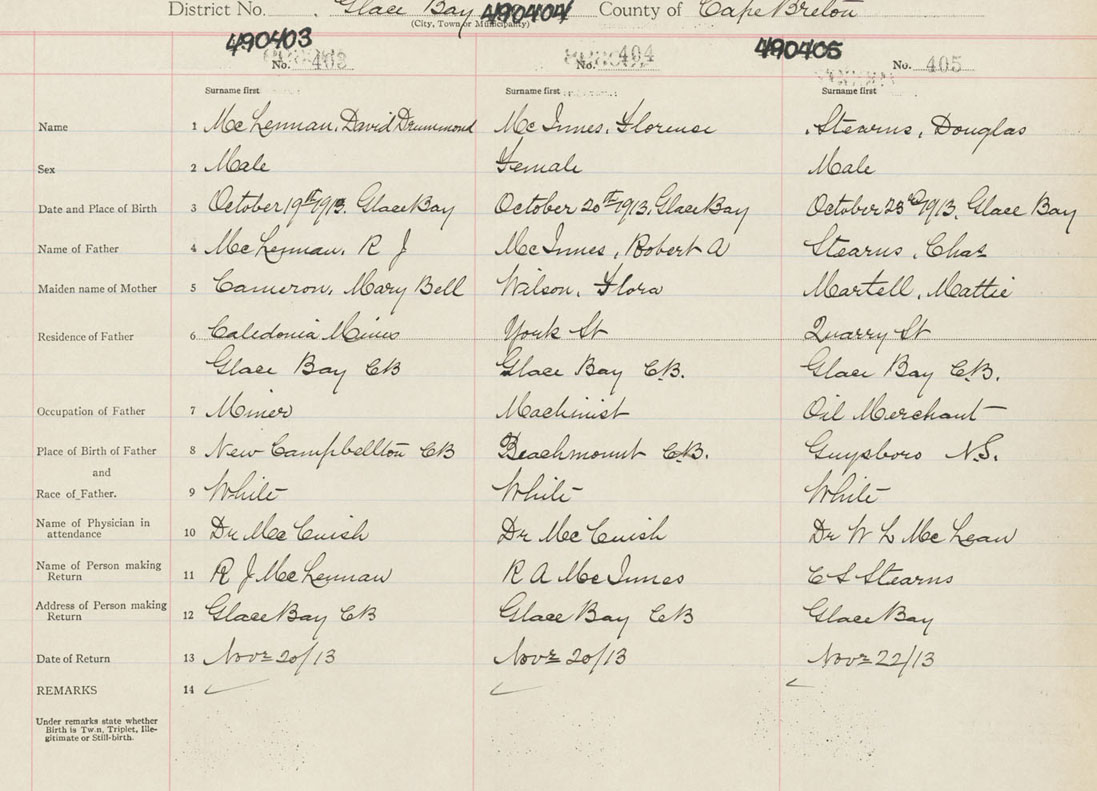 District No. Glace Bay County of Cape Breton
(City, Town or Municipality)
490403 490404 490405
No. 403 No. 404 No. 405
Surname first Surname first Surname first
Name 1 McLennan, David Drummond McInnes, Florence Stearns, Douglas
Sex 2 Male Female Male
Date and Place of Birth 3 October 19th 1913, Glace Bay October 20th 1913, Glace Bay October 23rd 1913, Glace Bay
Name of Father 4 McLennan, R J McInnes, Robert A Stearns, Chas
Maiden name of Mother 5 Cameron, Mary Bell Wilson, Flora Martell, Mattie
Residence of Father 6 Caledonia Mines York St Quarry St
Glace Bay CB Glace Bay C.B. Glace Bay C.B.
Occupation of Father 7 Miner Machinist Oil Merchant
Place of Birth of Father 8 New Campbellton CB Beachmount C.B. Guysboro N.S.
and
Race of Father. 9 White White White
Name of Physician in
attendance 10 Dr McCuish Dr McCuish Dr W L McLean
Name of Person making
Return 11 R J McLennan R A McInnes C S Stearns
Address of Person making
Return 12 Glace Bay CB Glace Bay CB Glace Bay
Date of Return 13 Novr 20/13 Novr 20/13 Novr 22/13
REMARKS 14
Under remarks state whether
Birth is Twin, Triplet, Ille-
gitimate or Still-birth.